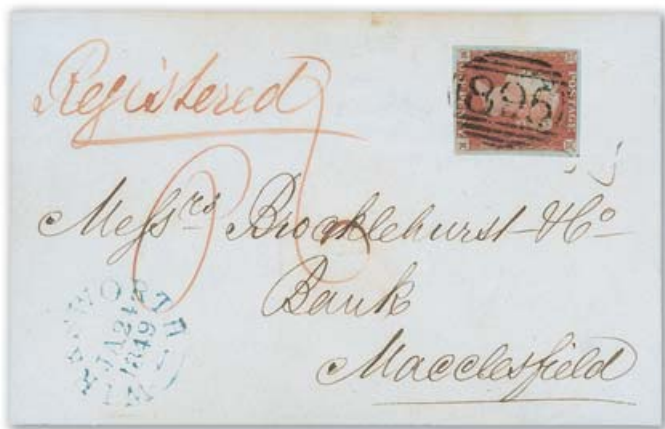 Registered
895
POSTAGE
Messrs Brocklehurst & Co
Bank
Macclesfield
WIRKSWORTH
JA 24
1849